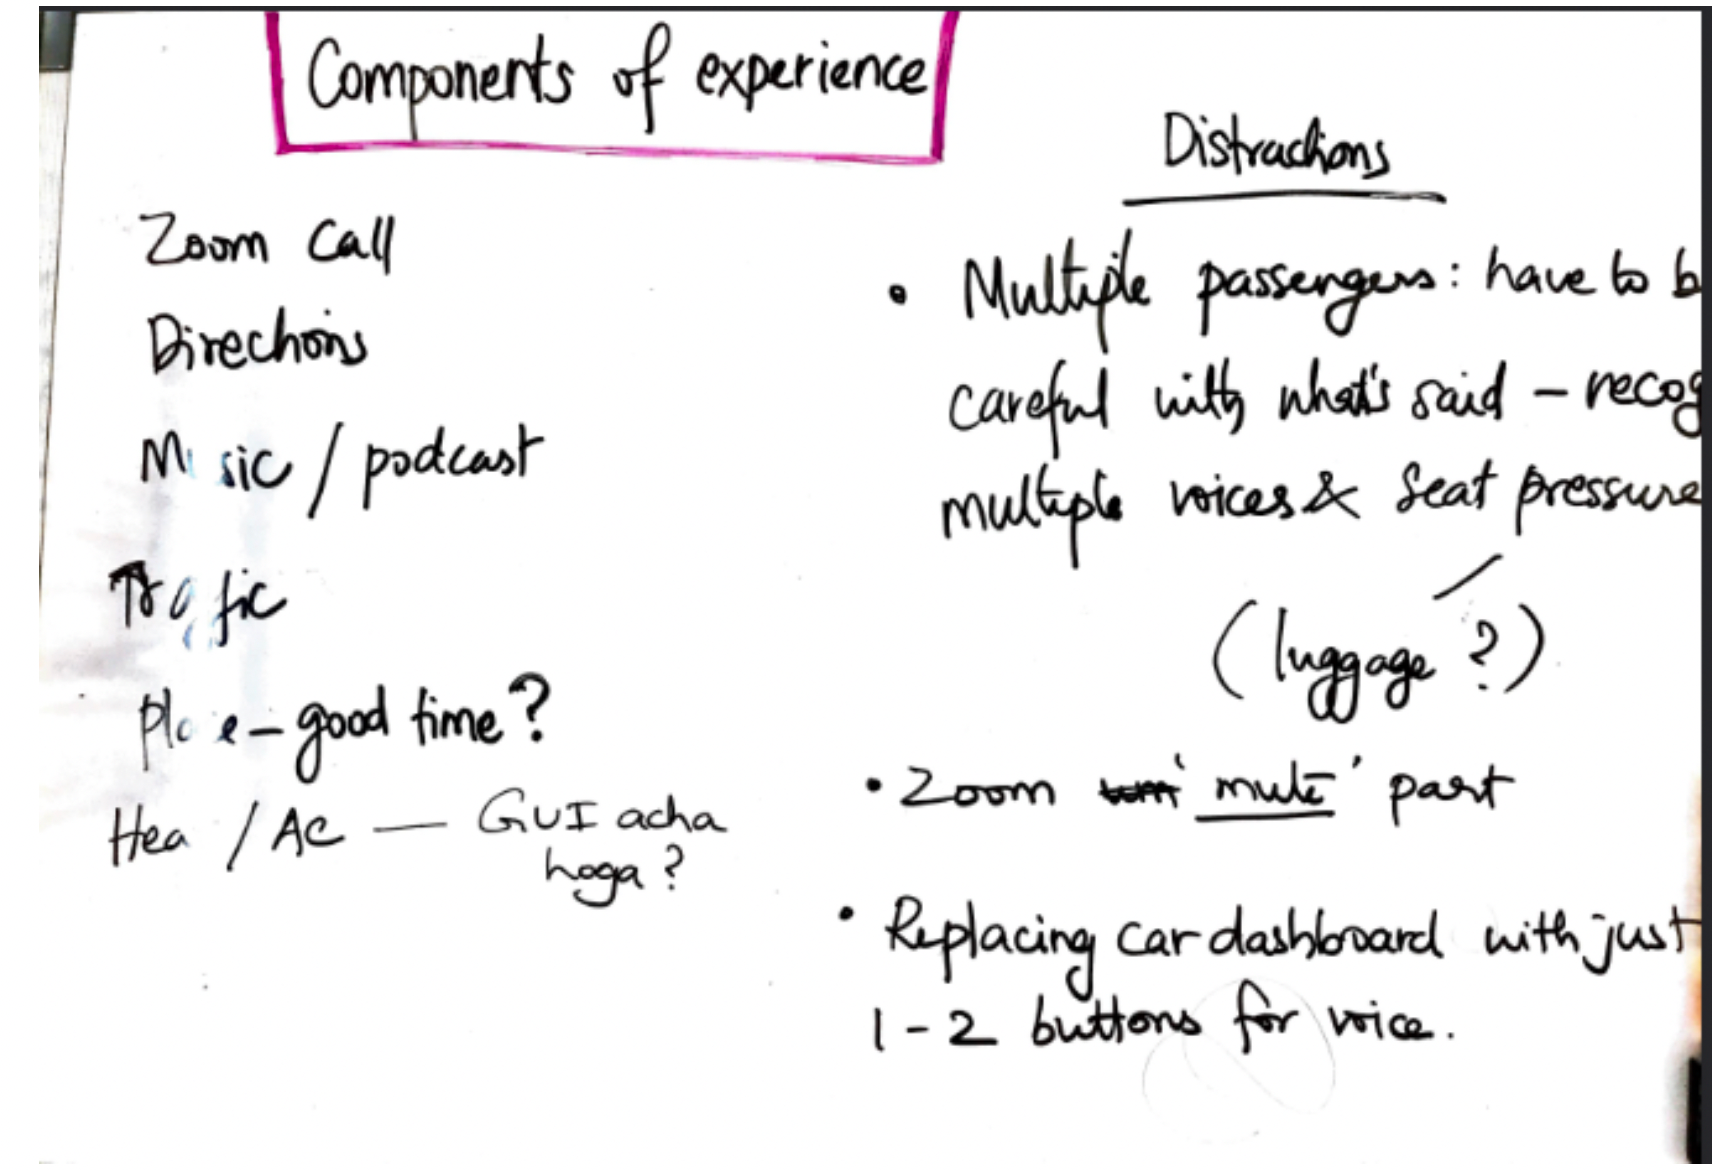 Components of experience
Zoom Call
Directions
Music / podcast
Traffic
Place - good time?
Heat / AC — GUI acha
hoga?
Distractions
• Multiple passengers: have to
careful with what's said -
multiple voices & seat pressure
(luggage ?)
• Zoom 'mute' part
• Replacing car dashboard with just
1-2 buttons for voice.